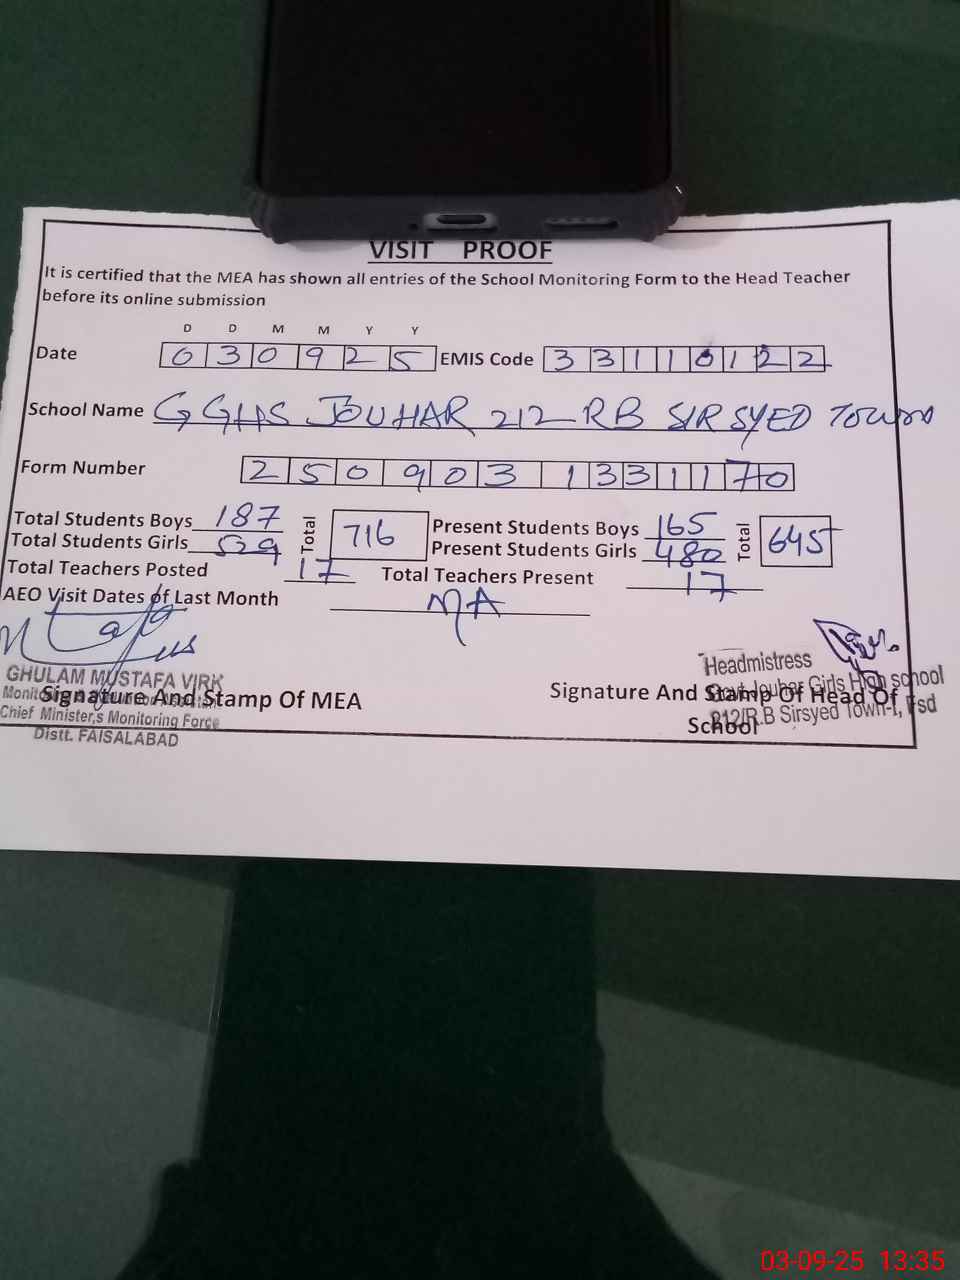 VISIT PROOF
It is certified that the MEA has shown all entries of the School Monitoring Form to the Head Teacher
before its online submission
D D M M Y Y
Date 0 3 0 9 2 5 EMIS Code 3 3 1 1 0 1 2 2
School Name GGHS JOUHAR 212 RB SIR SYED TOWN
Form Number 2 5 0 9 0 3 1 3 3 1 1 7 0
Total Students Boys 187 Total 716 Present Students Boys 165 Total 645
Total Students Girls 529 Present Students Girls 480
Total Teachers Posted 17 Total Teachers Present 17
AEO Visit Dates of Last Month NA
GHULAM MUSTAFA VIRK
Signature And Stamp Of MEA
Chief Minister,s Monitoring Force
Distt. FAISALABAD
Headmistress
Govt Jouher Girls High school
212/R.B Sirsyed Town-I, Fsd
Signature And Stamp Of Head Of
School
03-09-25 13:35